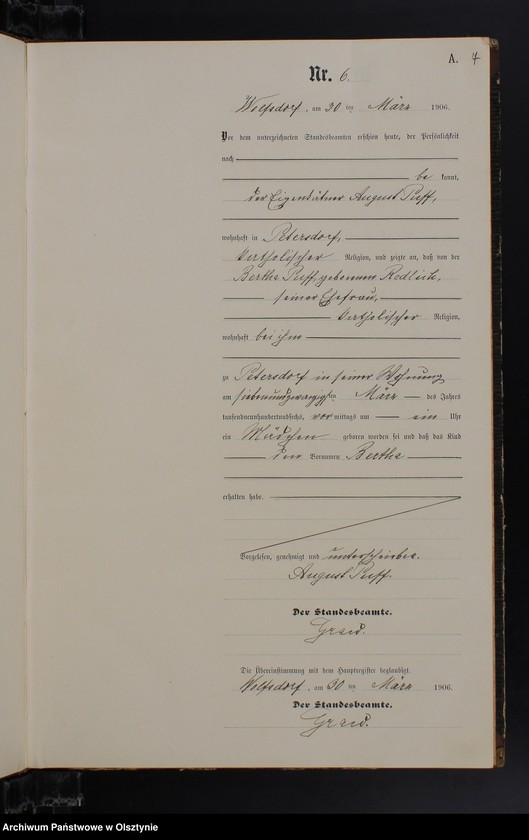 A. 4
Nr. 6.
Wolfsdorf, am 30 ten März 1906.
Vor dem unterzeichneten Standesbeamten erschien heute, der Persönlichkeit
nach
be kannt,
der Eigenkätner August Puff,
wohnhaft in Petersdorf,
katholischer Religion, und zeigte an, daß von der
Bertha Puff, geborenen Redlich,
seiner Ehefrau,
katholischer Religion,
wohnhaft bei ihm
zu Petersdorf in seiner Wohnung
am siebenundzwanzigsten März des Jahres
tausendneunhundertundsechs, vormittags um ein Uhr
ein Mädchen geboren worden sei und daß das Kind
den Vornamen Bertha
erhalten habe.
Vorgelesen, genehmigt und unterschrieben.
August Puff.
Der Standesbeamte.
Die Übereinstimmung mit dem Hauptregister beglaubigt.
Wolfsdorf, am 30 ten März 1906.
Der Standesbeamte.
Archiwum Państwowe w Olsztynie